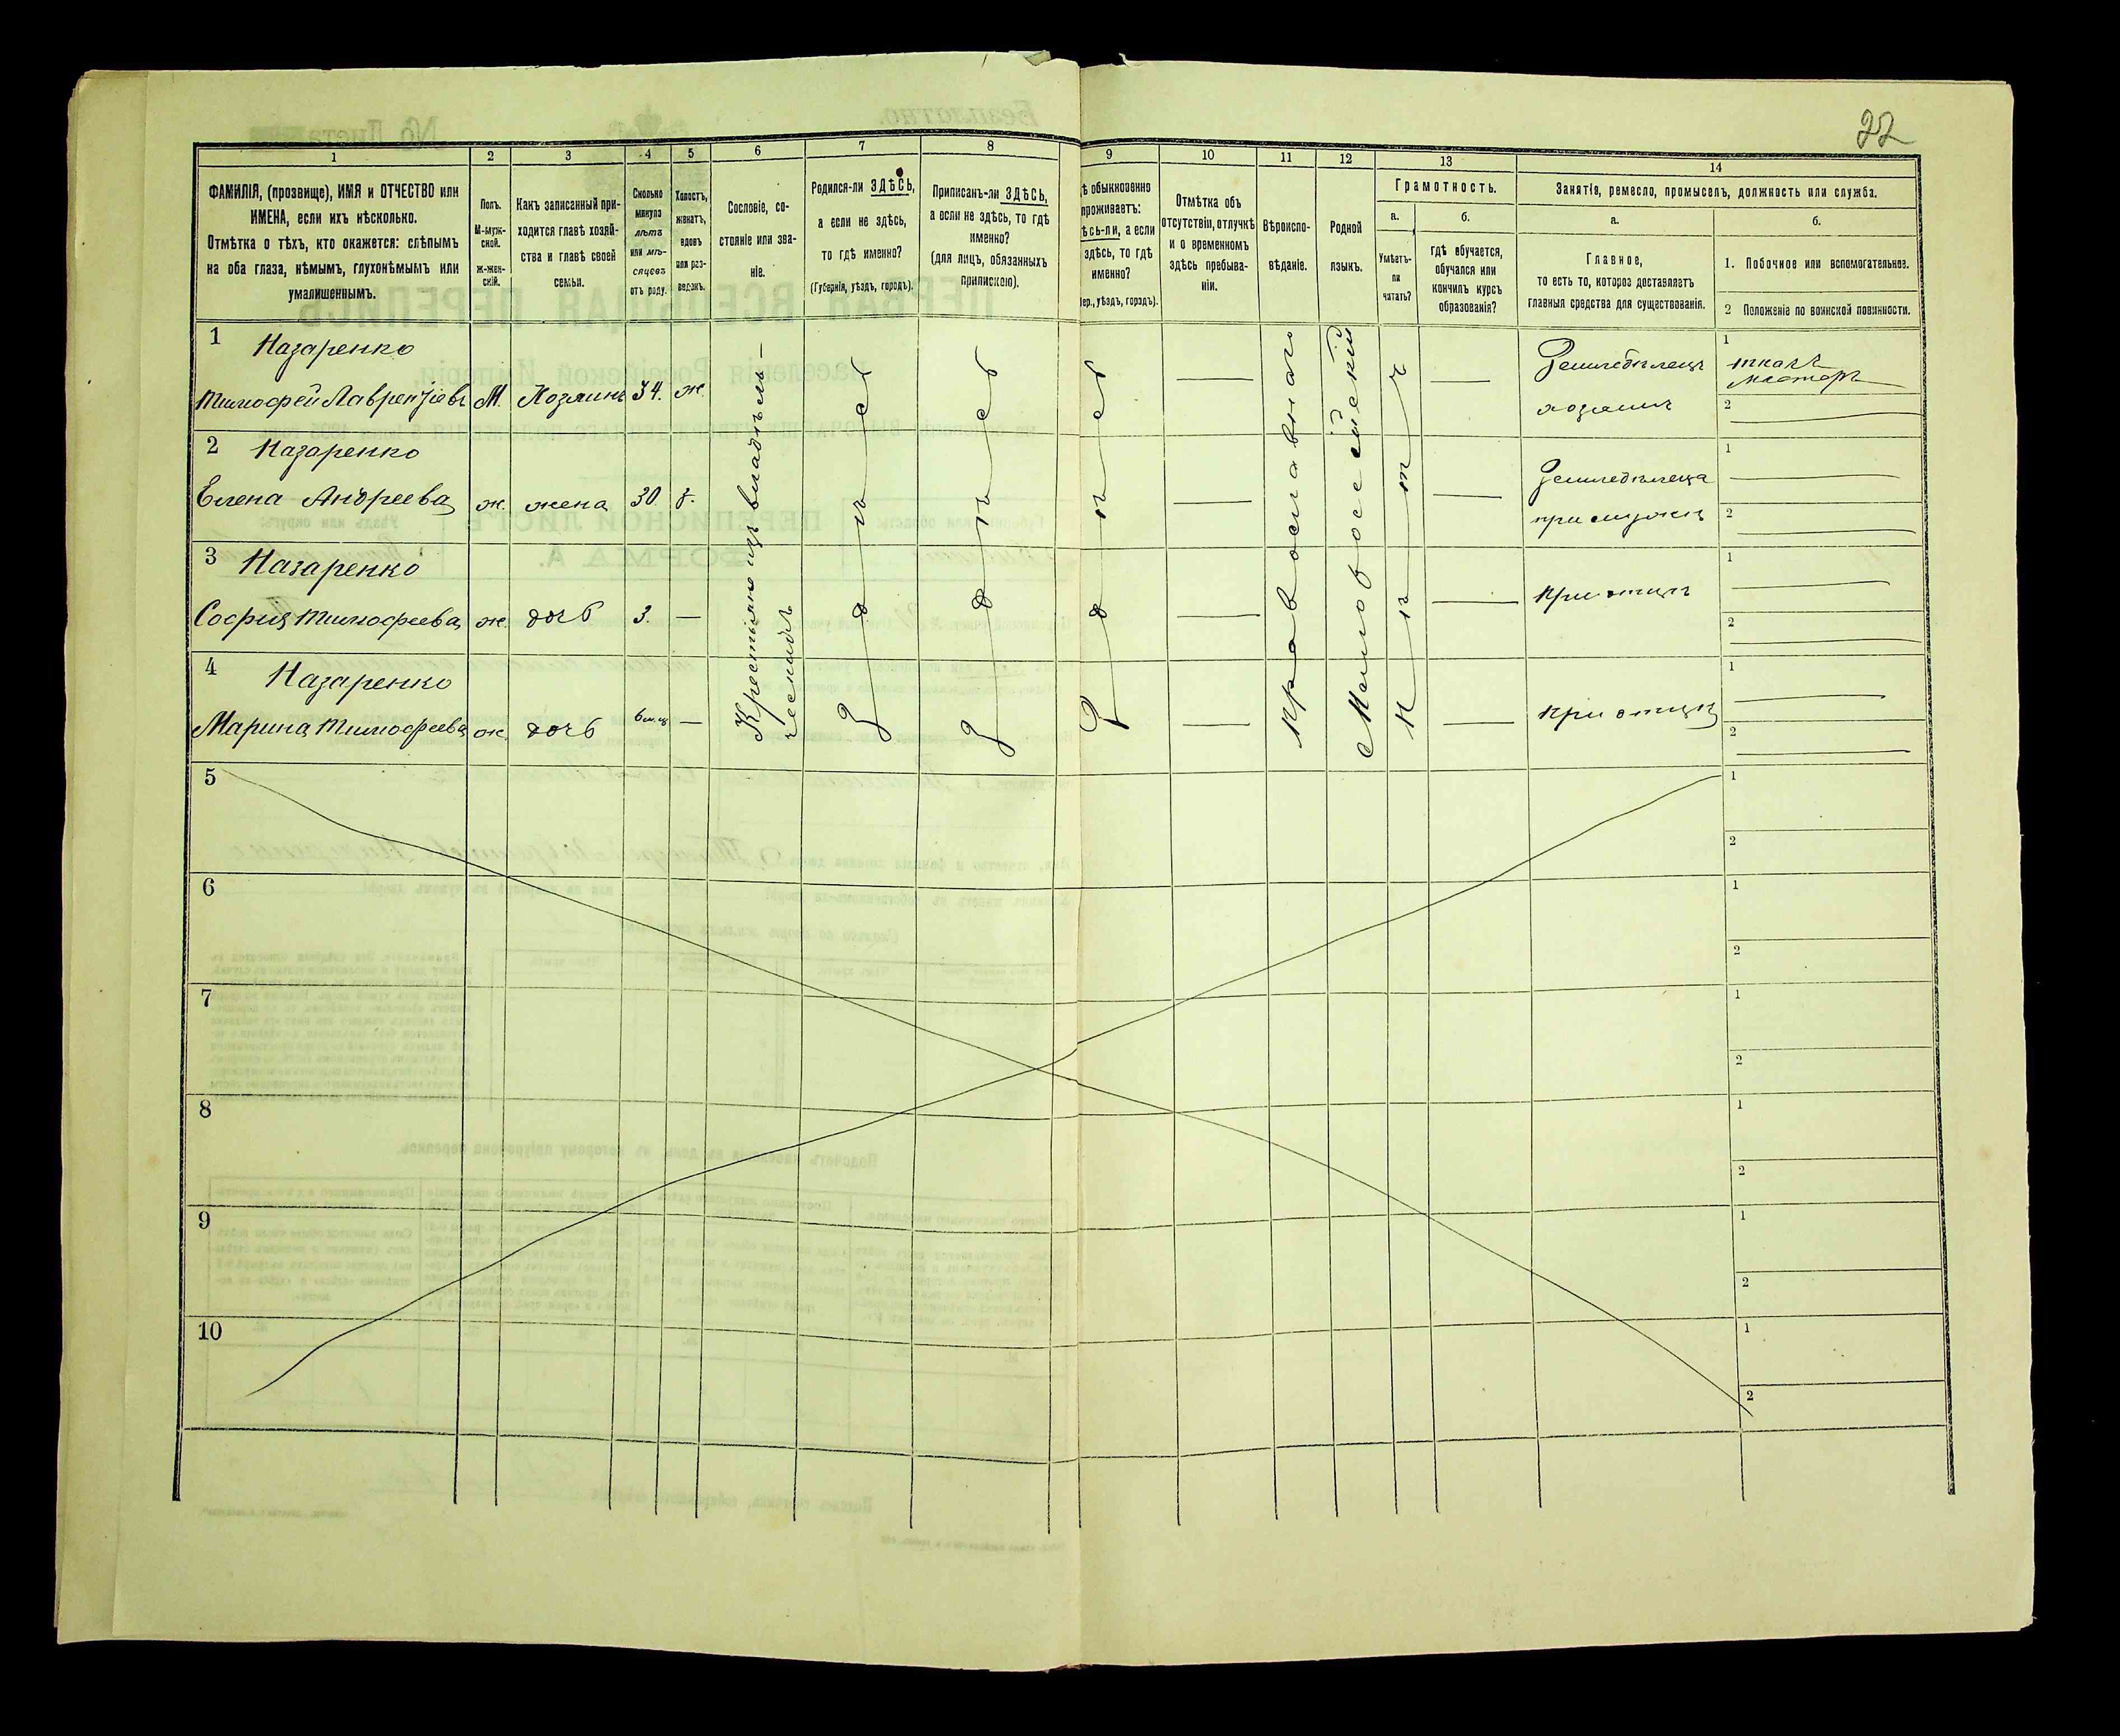 22
1
2
3
4
5
6
7
8
9
10
11
12
13
14
ФАМИЛІЯ, (прозвище), ИМЯ и ОТЧЕСТВО или
ИМЕНА, если ихъ нѣсколько.
Отмѣтка о тѣхъ, кто окажется: слѣпымъ
на оба глаза, нѣмымъ, глухонѣмымъ или
умалишеннымъ.
Полъ.
М-муж-
ской.
ж-жен-
скій.
Какъ записанный при-
ходится главѣ хозяй-
ства и главѣ своей
семьи.
Сколько
минуло
лѣтъ
или мѣ-
сяцевъ
отъ роду.
Холостъ,
женатъ,
вдовъ
или раз-
веденъ.
Сословіе, со-
стояніе или зва-
ніе.
Родился-ли ЗДѢСЬ,
а если не здѣсь,
то гдѣ именно?
(Губернія, уѣздъ, городъ).
Приписанъ-ли ЗДѢСЬ,
а если не здѣсь, то гдѣ
именно?
(для лицъ, обязанныхъ
припискою).
ѣ обыкновенно
проживаетъ:
ѣсь-ли, а если
здѣсь, то гдѣ
именно?
бер., уѣздъ, городъ).
Отмѣтка объ
отсутствіи, отлучкѣ
и о временномъ
здѣсь пребыва-
ніи.
Вѣроиспо-
вѣданіе.
Родной
языкъ.
Грамотность.
а.
б.
Умѣетъ-
ли
читать?
гдѣ обучается,
обучался или
кончилъ курсъ
образованія?
Занятіе, ремесло, промыселъ, должность или служба.
а.
б.
Главное,
то есть то, которое доставляетъ
главныя средства для существованія.
1. Побочное или вспомогательное.
2 Положеніе по воинской повинности.
1 Назаренко
Тимофей Лаврентіевъ М. Хозяинъ 34. ж.
Земледѣлецъ
хозяинъ
1 ткачъ
мастеръ
2
2 Назаренко
Елена Андреева ж. жена 30. з.
Земледѣлица
при мужѣ
1
2
3 Назаренко
София Тимофеева ж. дочь 3. —
При отцѣ
1
2
4 Назаренко
Марина Тимофеева ж. дочь 6 м-ц —
При отцѣ
1
2
Крестьяне изъ владѣль-
ческихъ
Здѣсь
Здѣсь
Здѣсь
Православнаго
Малороссійскій
Нѣтъ
5
1
2
6
1
2
7
1
2
8
1
2
9
1
2
10
1
2